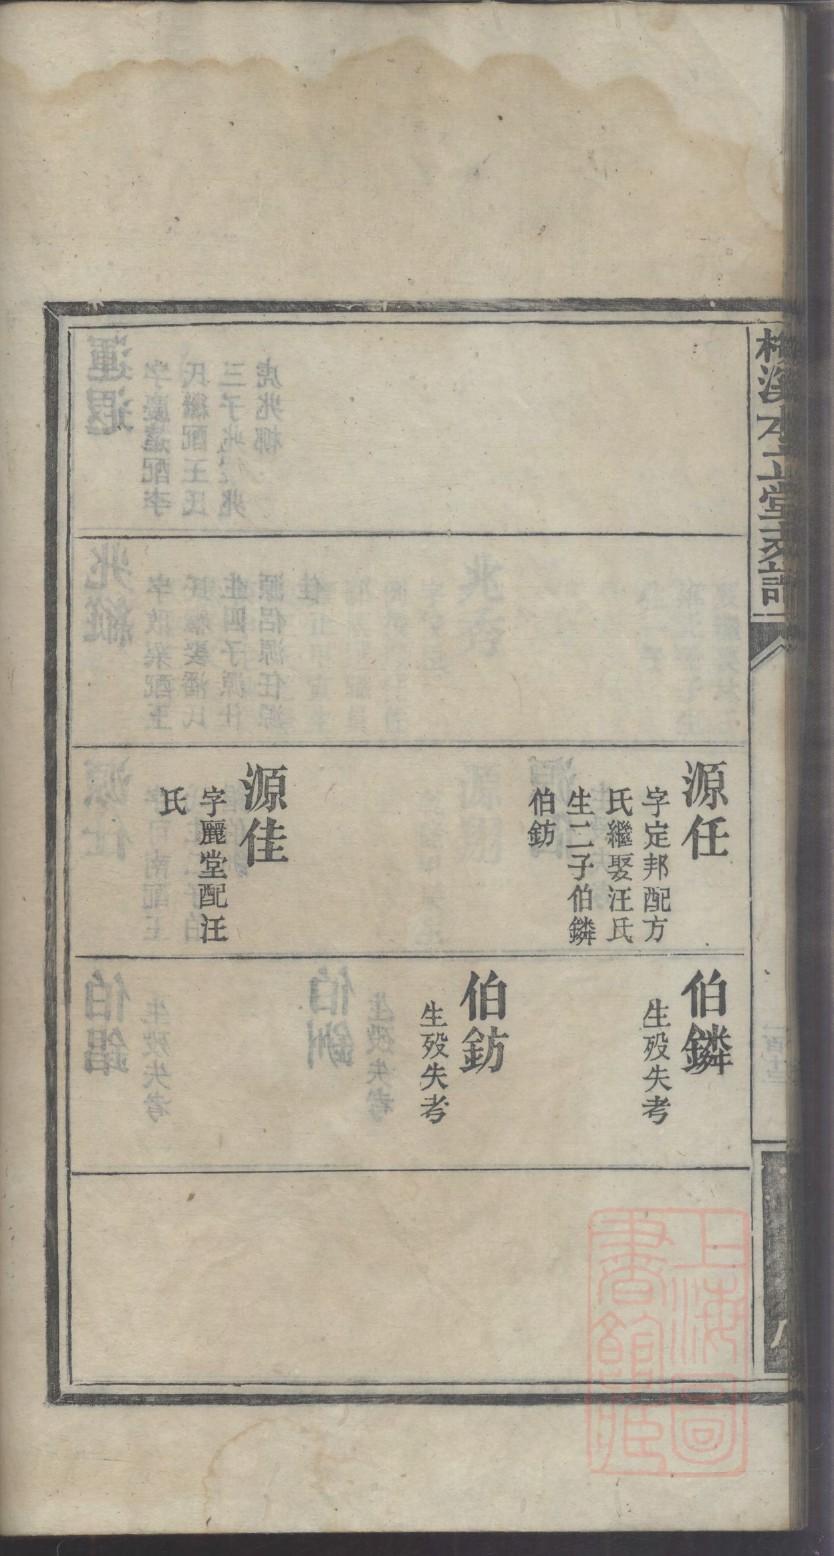 源任
字定邦配方
氏繼娶汪氏
生二子伯鏻
伯鈁
源佳
字麗堂配汪
氏
伯鏻
生殁失考
伯鈁
生殁失考
上海圖
書館藏